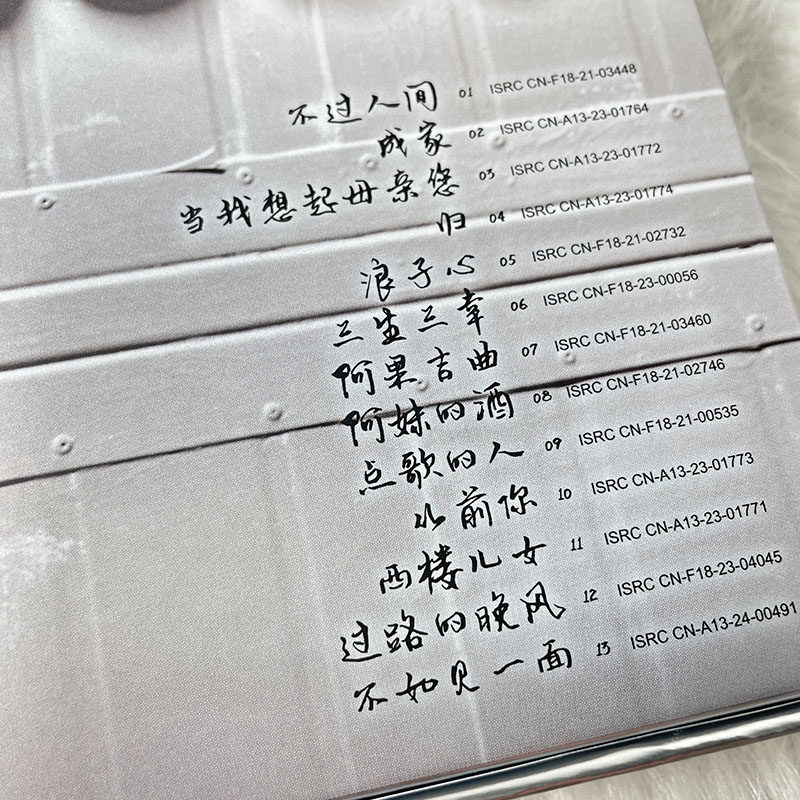 不过人间 01 ISRC CN-F18-21-03448
成家 02 ISRC CN-A13-23-01764
当我想起母亲您 03 ISRC CN-A13-23-01772
归 04 ISRC CN-A13-23-01774
浪子心 05 ISRC CN-F18-21-02732
三生三幸 06 ISRC CN-F18-23-00056
阿果吉曲 07 ISRC CN-F18-21-03460
阿妹的酒 08 ISRC CN-F18-21-02746
点歌的人 09 ISRC CN-F18-21-00535
以前你 10 ISRC CN-A13-23-01773
西楼儿女 11 ISRC CN-A13-23-01771
过路的晚风 12 ISRC CN-F18-23-04045
不如见一面 13 ISRC CN-A13-24-00491